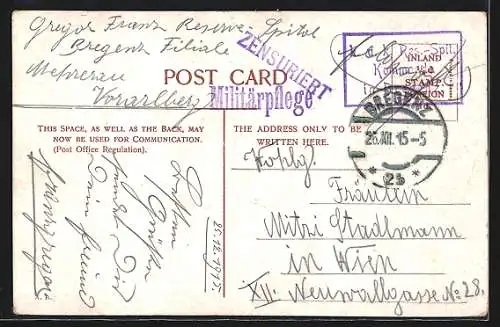 Gregor Franz Reserve-Spital
Bregenz Filiale
Mehrerau
Vorarlberg
ZENSURIERT
Militärpflege
POST CARD
Res.-Spit.
INLAND
STAMP
BREGENZ
26.XII.15-5
* 2b *
THIS SPACE, AS WELL AS THE BACK, MAY
NOW BE USED FOR COMMUNICATION.
(Post Office Regulation).
THE ADDRESS ONLY TO BE
WRITTEN HERE.
Grüßen
sendet Dir
Dein Freund
25.12.1915
Wohlg.
Fräulein
Mitzi Stadlmann
in Wien
XII. Neuwallgasse No 28.